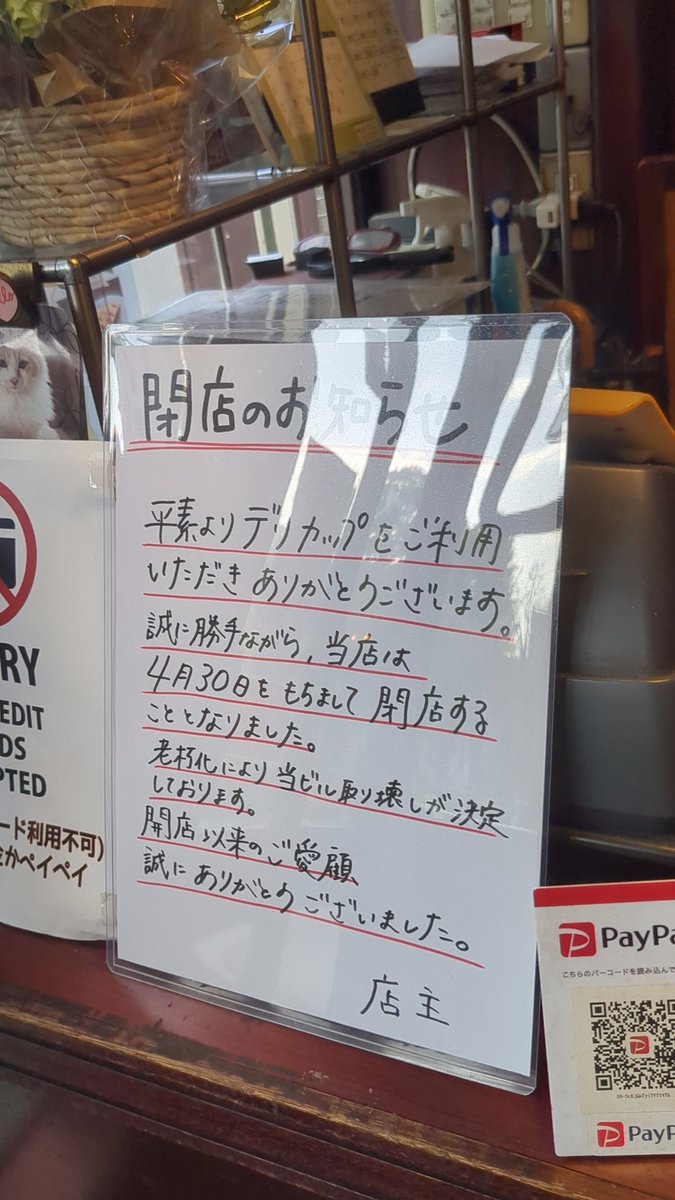 閉店のお知らせ
平素よりデリカップをご利用
いただきありがとうございます。
誠に勝手ながら、当店は
4月30日をもちまして閉店する
こととなりました。
老朽化により当ビル取り壊しが決定
しております。
開店以来のご愛顧
誠にありがとうございました。
店主
RY
EDIT
DS
PTED
ード利用不可)
かペイペイ
PayPa
こちらのバーコードを読み込んで
PayPa